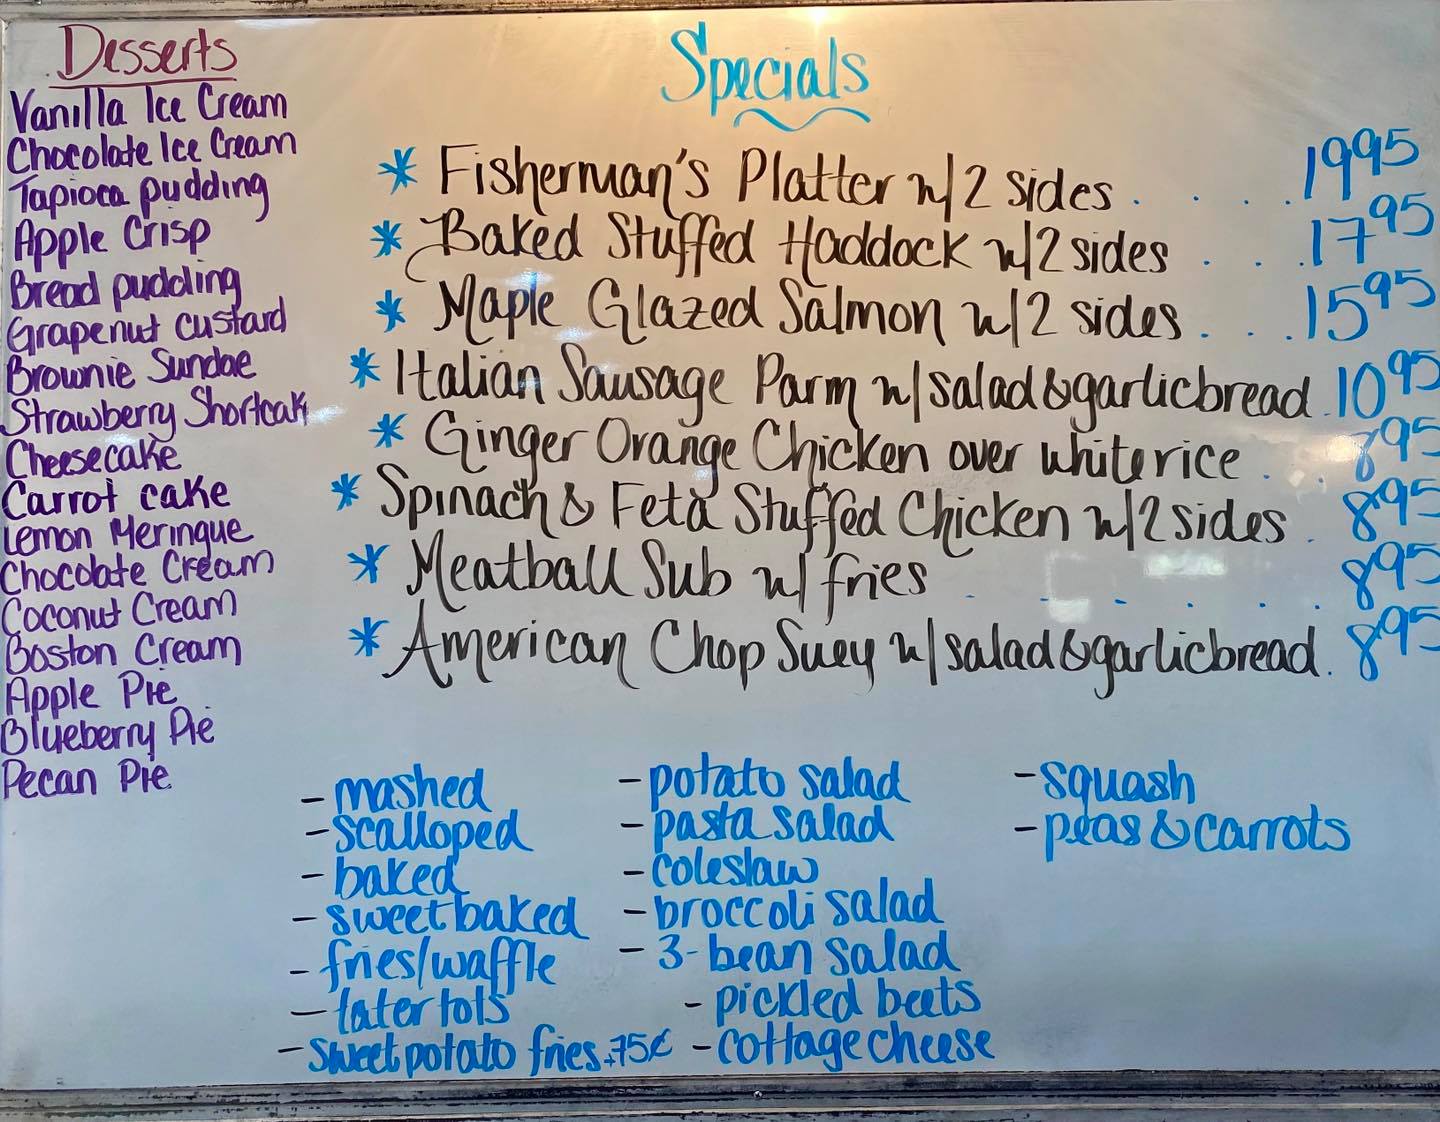 Desserts
Vanilla Ice Cream
Chocolate Ice Cream
Tapioca pudding
Apple Crisp
Bread pudding
Grapenut custard
Brownie Sundae
Strawberry Shortcak
Cheesecake
Carrot cake
Lemon Meringue
Chocolate Cream
Coconut Cream
Boston Cream
Apple Pie
Blueberry Pie
Pecan Pie
Specials
* Fisherman's Platter w/2 sides . . . . 19.95
* Baked Stuffed Haddock w/2 sides . . . 17.95
* Maple Glazed Salmon w/2 sides . . . 15.95
* Italian Sausage Parm w/salad&garlicbread . 10.95
* Ginger Orange Chicken over white rice . . 8.95
* Spinach & Feta Stuffed Chicken w/2 sides . 8.95
* Meatball Sub w/ fries . . . . . . 8.95
* American Chop Suey w/salad&garlicbread . 8.95
- mashed
- scalloped
- baked
- sweet baked
- fries/waffle
- tater tots
- sweet potato fries +75¢
- potato salad
- pasta salad
- coleslaw
- broccoli salad
- 3-bean salad
- pickled beets
- cottage cheese
- squash
- peas & carrots